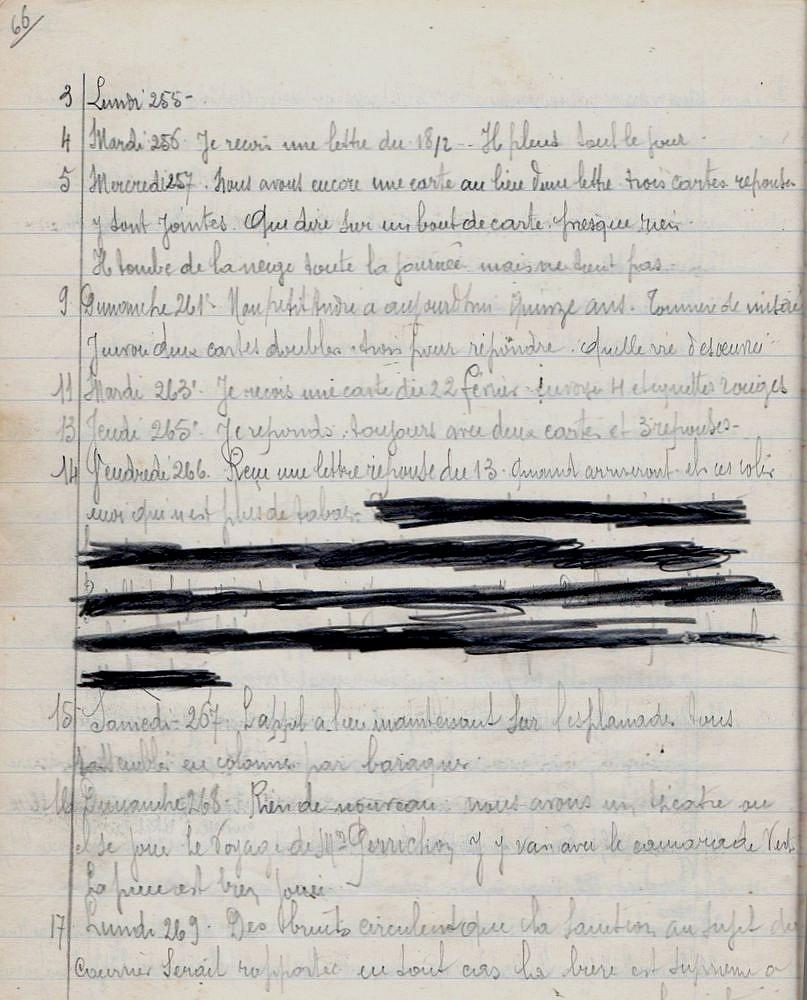 66
3 Lundi 255 -
4 Mardi 256. Je reçois une lettre du 18/2 -- Il pleut tout le jour.
5 Mercredi 257. Nous avons encore une carte au lieu d'une lettre. trois cartes reponses
y sont jointes. Que dire sur un bout de carte. presque rien.
Il tombe de la neige toute la journée mais ne tient pas.
9 Dimanche 261. Mon petit André a aujourd'hui quinze ans. Tonnerre de
J'envoi deux cartes doubles. trois pour répondre. Quelle vie
11 Mardi 263. Je reçois une carte du 22 février. envoye 4 etiquettes rouges
13 Jeudi 265. Je reponds. toujours avec deux cartes et 3 reponses -
14 Vendredi 266. Reçu une lettre reponse du 13. quand arriveront et ces colis
moi qui n'est plus de tabac.
15 Samedi - 267. L'appel a lieu maintenant sur l'esplanade tous
en colonne par baraques.
16 Dimanche 268. Rien de nouveau. nous avons un théatre ou
il se joue le Voyage de Mr Perrichon j'y vais avec le camarade
La piece est bien joué.
17 Lundi 269. Des bruits circulent que la sanction au sujet du
Courrier serait rapportée en tout cas la biere est